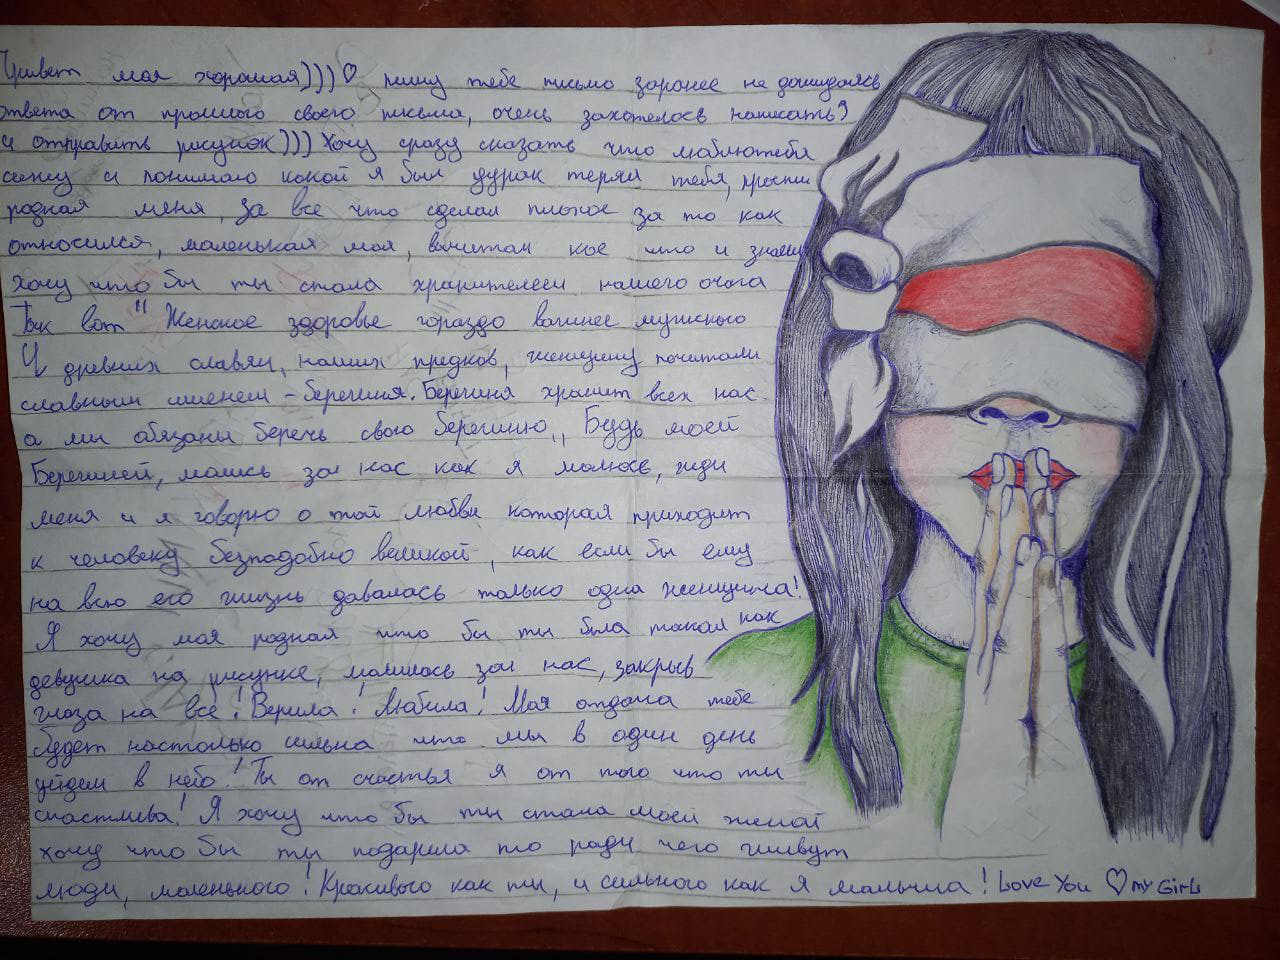 Привет моя хорошая)))♡ пишу тебе письмо заранее не дожидаясь
ответа от прошлого своего письма, очень захотелось написать)
и отправить рисунок))) Хочу сразу сказать что люблютебя
сижу и понимаю какой я был дурак терял тебя, прости
родная меня, за все что сделал плохое за то как
относился, маленькая моя, вычитал кое что и знаешь
хочу что бы ты стала хранителем нашего очага
Так вот " Женское здоровье гораздо важнее мужского
У древних славян, наших предков, женщину почитали
славным именем - берегиня. Берегиня хранит всех нас
а мы обязаны беречь свою берегиню,, Будь моей
Берегиней, молись за нас как я молюсь, жди
меня и я говорю о той любви которая приходит
к человеку безподобно великой, как если бы ему
на всю его жизнь давалась только одна женщина!
Я хочу моя родная что бы ты была такая как
девушка на рисунке, молилась за нас, закрыв
глаза на все! Верила! Любила! Моя отдача тебе
будет настолько сильна что мы в один день
уйдем в небо! Ты от счастья я от того что ты
счастлива! Я хочу что бы ты стала моей женой
хочу что бы ты подарила то ради чего живут
люди, маленького! Красивого как ты, и сильного как я малыша! Love You ♡ my Girl